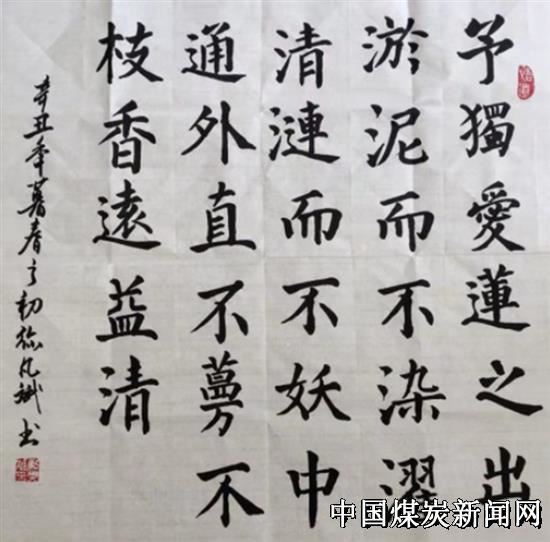 予獨愛蓮之出
淤泥而不染濯
清漣而不妖中
通外直不蔓不
枝香遠益清
辛丑年暮春之初凡斌书
中国煤炭新闻网